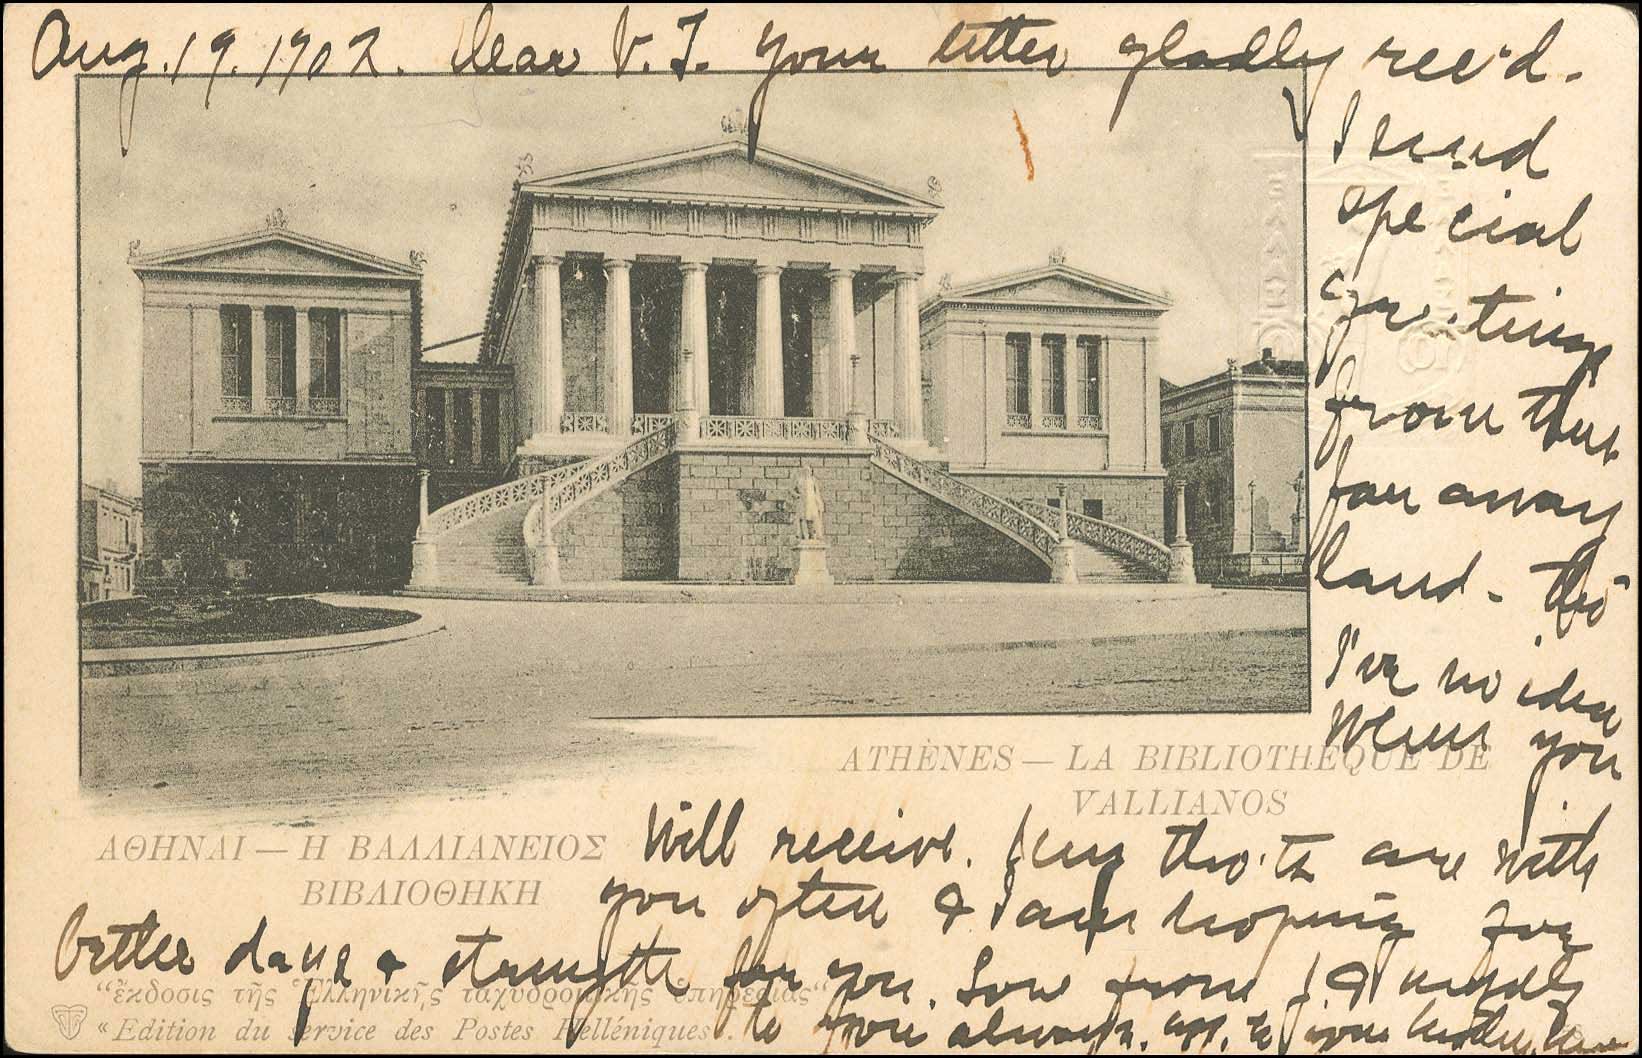 Aug. 19. 1902. Dear V. J. Your letter gladly rec'd.
I send
special
gre.tings
from this
far away
land - tho'
I've no idea
when you
will receive. My tho'ts are with
you often & I am hoping for
better days & strength for you. Love from
to you always.
ATHÈNES — LA BIBLIOTHÈQUE DE
VALLIANOS
ΑΘΗΝΑΙ — Η ΒΑΛΛΙΑΝΕΙΟΣ
ΒΙΒΛΙΟΘΗΚΗ
“ἔκδοσις τῆς Ἑλληνικῆς ταχυδρομικῆς ὑπηρεσίας”
« Edition du service des Postes Helléniques.